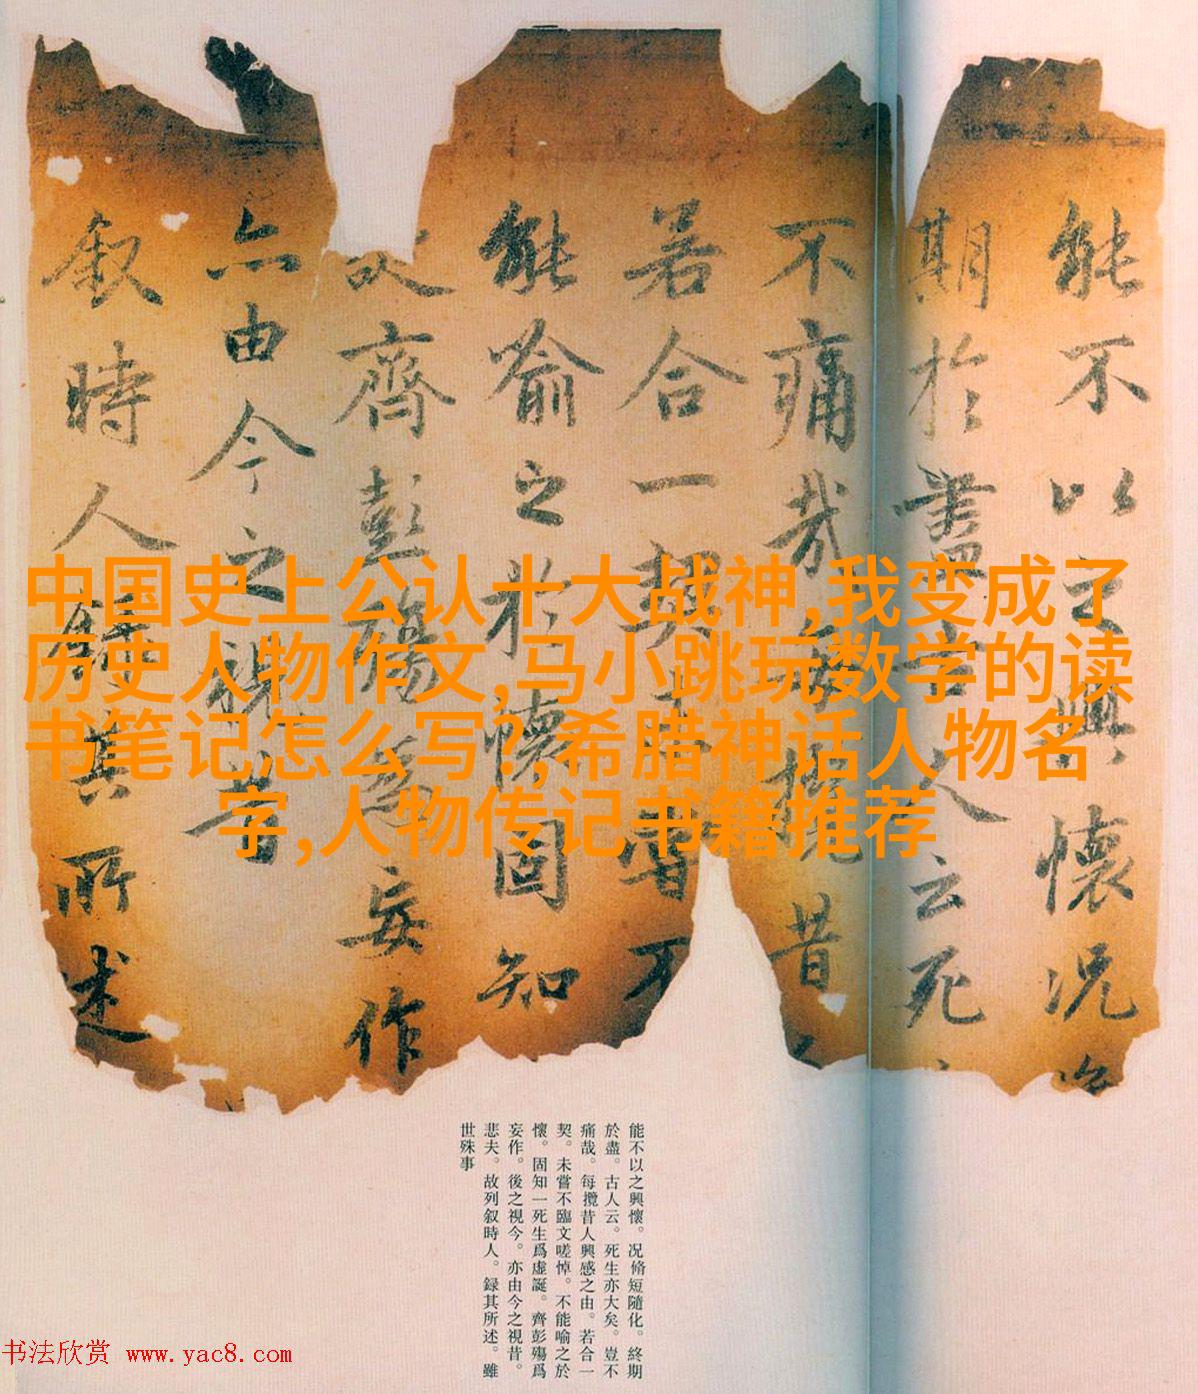 能不以之興懷况
期於盡古人云死
不痛哉每攬昔
若合一契未嘗不
能喻之於懷固知
齊彭殤爲妄作
亦由今之視昔
叙時人録其所述
中国史上公认十大战神,我变成了
历史人物作文,马小跳玩数学的读
书笔记怎么写?,希腊神话人物名
字,人物传记书籍推荐
能不以之興懷。况脩短隨化。終期
於盡。古人云。死生亦大矣。豈不
痛哉。每攬昔人興感之由。若合一
契。未嘗不臨文嗟悼。不能喻之於
懷。固知一死生爲虛誕。齊彭殤爲
妄作。後之視今。亦由今之視昔。
悲夫。故列叙時人。録其所述。雖
世殊事
书法欣赏 www.yac8.com